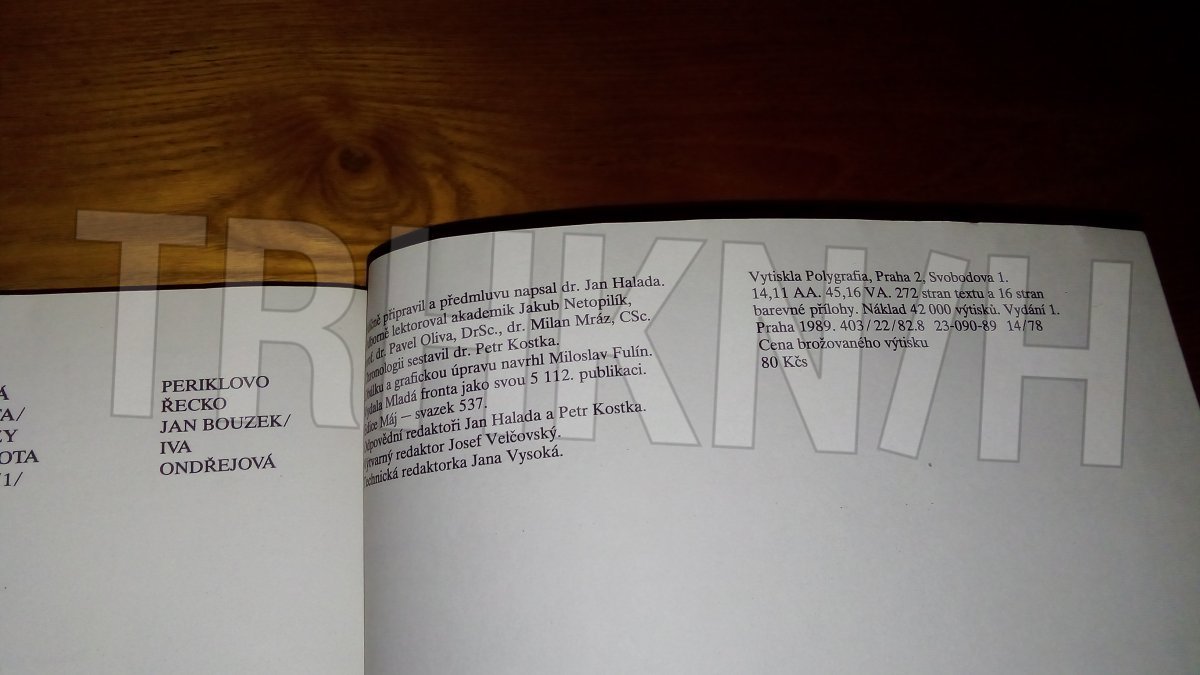 TRHKNIH
Á
TA/
EY
OTA
/1/
PERIKLOVO
ŘECKO
JAN BOUZEK/
IVA
ONDŘEJOVÁ
připravil a předmluvu napsal dr. Jan Halada.
lektoroval akademik Jakub Netopilík,
dr. Pavel Oliva, DrSc., dr. Milan Mráz, CSc.
sestavil dr. Petr Kostka.
a grafickou úpravu navrhl Miloslav Fulín.
Mladá fronta jako svou 5 112. publikaci.
Máj – svazek 537.
redaktoři Jan Halada a Petr Kostka.
redaktor Josef Velčovský.
redaktorka Jana Vysoká.
Vytiskla Polygrafia, Praha 2, Svobodova 1.
14,11 AA. 45,16 VA. 272 stran textu a 16 stran
barevné přílohy. Náklad 42 000 výtisků. Vydání 1.
Praha 1989. 403/22/82.8 23-090-89 14/78
Cena brožovaného výtisku
80 Kčs